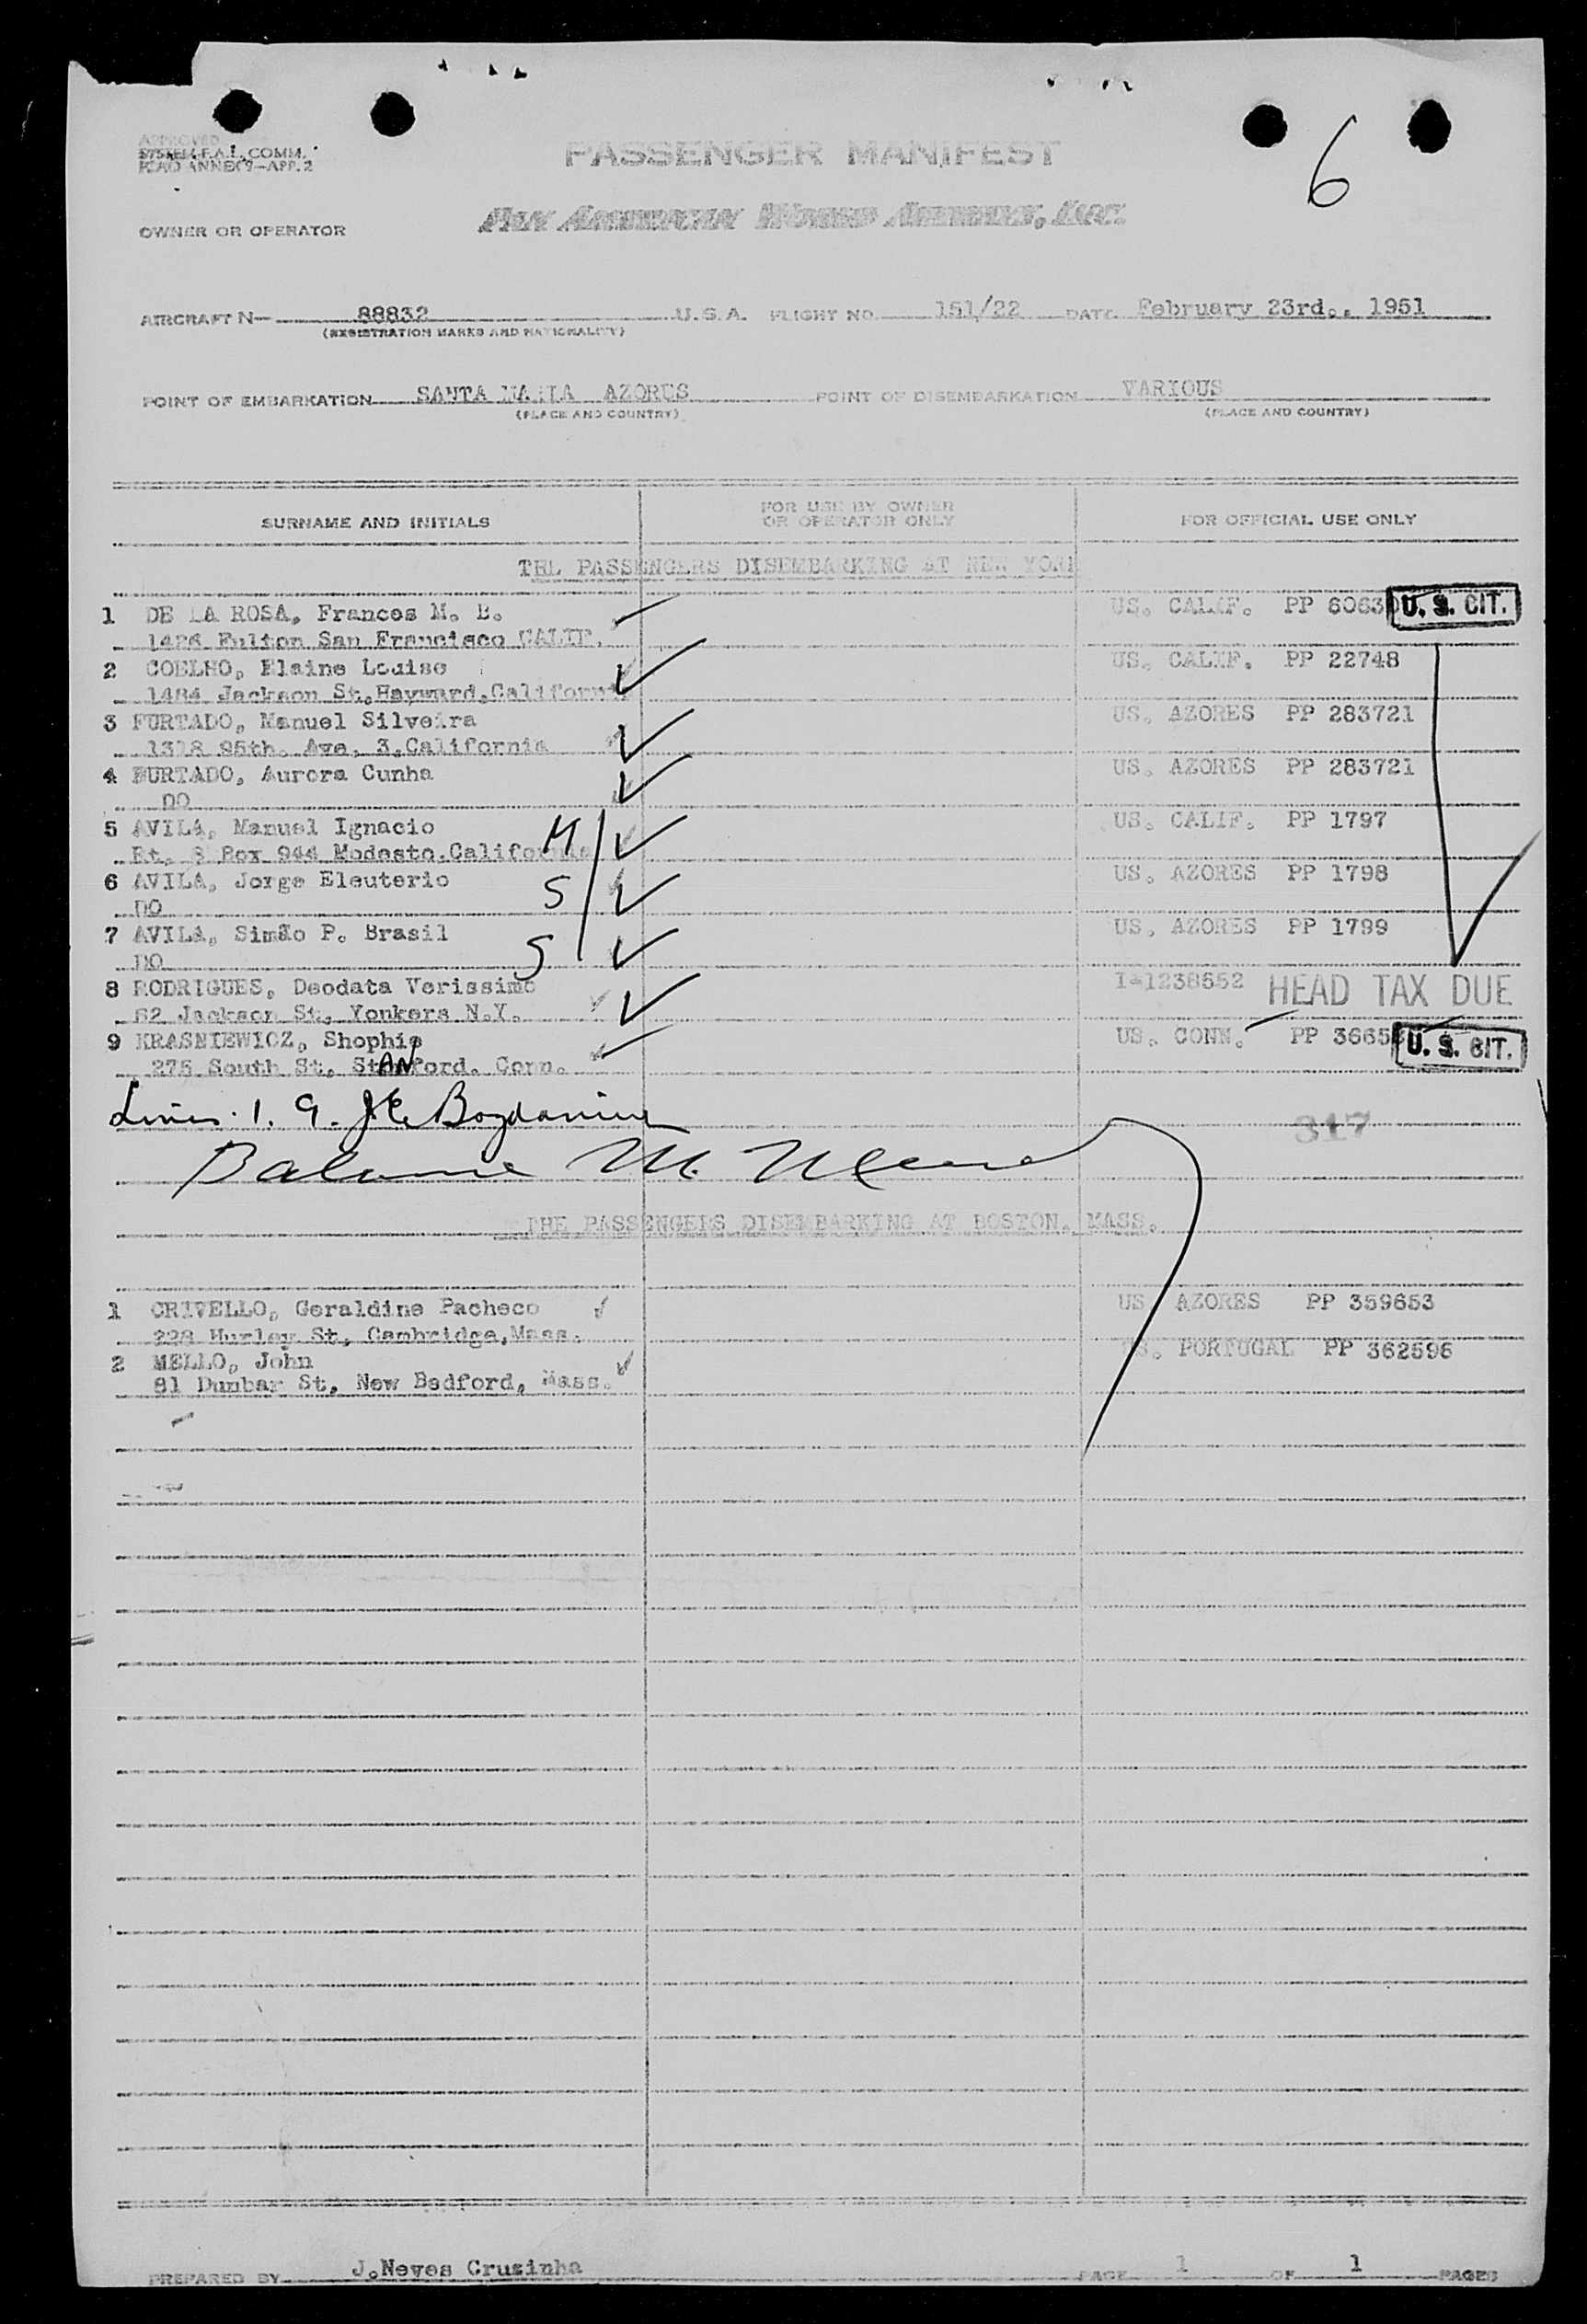 APPROVED
SYSTEM F.A.L. COMM.
ICAO ANNEX 9—APP. 2
PASSENGER MANIFEST
6
OWNER OR OPERATOR
PAN AMERICAN WORLD AIRWAYS, INC.
AIRCRAFT N— 88832 U.S.A. FLIGHT NO. 151/22 DATE February 23rd., 1951
(REGISTRATION MARKS AND NATIONALITY)
POINT OF EMBARKATION SANTA MARIA AZORES POINT OF DISEMBARKATION VARIOUS
(PLACE AND COUNTRY) (PLACE AND COUNTRY)
SURNAME AND INITIALS FOR USE BY OWNER OR OPERATOR ONLY FOR OFFICIAL USE ONLY
THE PASSENGERS DISEMBARKING AT NEW YORK
1 DE LA ROSA, Frances M. B. US. CALIF. PP 6063 U. S. CIT.
1426 Fulton San Francisco CALIF.
2 COELHO, Elaine Louise US. CALIF. PP 22748
1484 Jackson St. Hayward, California
3 FURTADO, Manuel Silveira US. AZORES PP 283721
1318 95th. Ave. 3, California
4 FURTADO, Aurora Cunha US. AZORES PP 283721
DO
5 AVILA, Manuel Ignacio M US. CALIF. PP 1797
Rt. 8 Box 944 Modesto, California
6 AVILA, Jorge Eleuterio S US. AZORES PP 1798
DO
7 AVILA, Simão P. Brasil S US. AZORES PP 1799
DO
8 RODRIGUES, Deodata Verissimo I-1238652 HEAD TAX DUE
62 Jackson St, Yonkers N.Y.
9 KRASNIEWICZ, Shophie US. CONN. PP 3665 U. S. CIT.
275 South St, Stanford. Conn.
Lines 1. 9.
317
THE PASSENGERS DISEMBARKING AT BOSTON, MASS.
1 CRIVELLO, Geraldine Pacheco US AZORES PP 359653
228 Hurley St, Cambridge, Mass.
2 MELLO, John US. PORTUGAL PP 362596
81 Dunbar St, New Bedford, Mass.
PREPARED BY J. Neves Crusinha PAGE 1 OF 1 PAGES